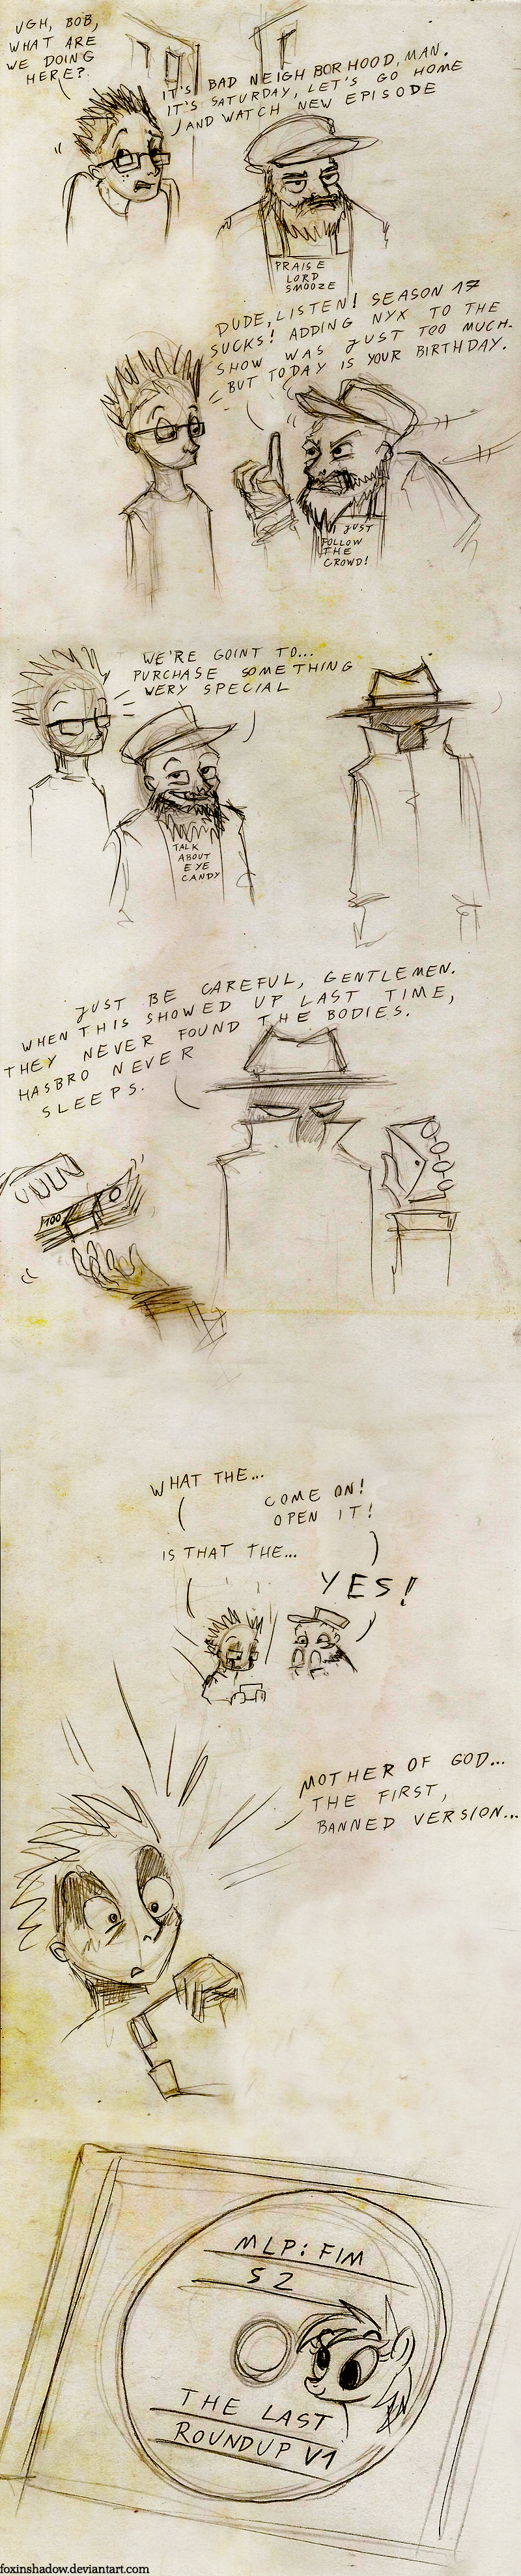 UGH, BOB,
WHAT ARE
WE DOING
HERE?
IT'S BAD NEIGHBORHOOD, MAN.
IT'S SATURDAY, LET'S GO HOME
AND WATCH NEW EPISODE
PRAISE
LORD
SMOOZE
DUDE, LISTEN! SEASON 17
SUCKS! ADDING NYX TO THE
SHOW WAS JUST TOO MUCH.
BUT TODAY IS YOUR BIRTHDAY.
JUST
FOLLOW
THE
CROWD!
WE'RE GOINT TO...
PURCHASE SOMETHING
WERY SPECIAL
TALK
ABOUT
EYE
CANDY
JUST BE CAREFUL, GENTLEMEN.
WHEN THIS SHOWED UP LAST TIME,
THEY NEVER FOUND THE BODIES.
HASBRO NEVER
SLEEPS.
100
WHAT THE...
COME ON!
OPEN IT!
IS THAT THE...
YES!
MOTHER OF GOD...
THE FIRST,
BANNED VERSION...
MLP: FIM
S2
THE LAST
ROUNDUP V1
foxinshadow.deviantart.com